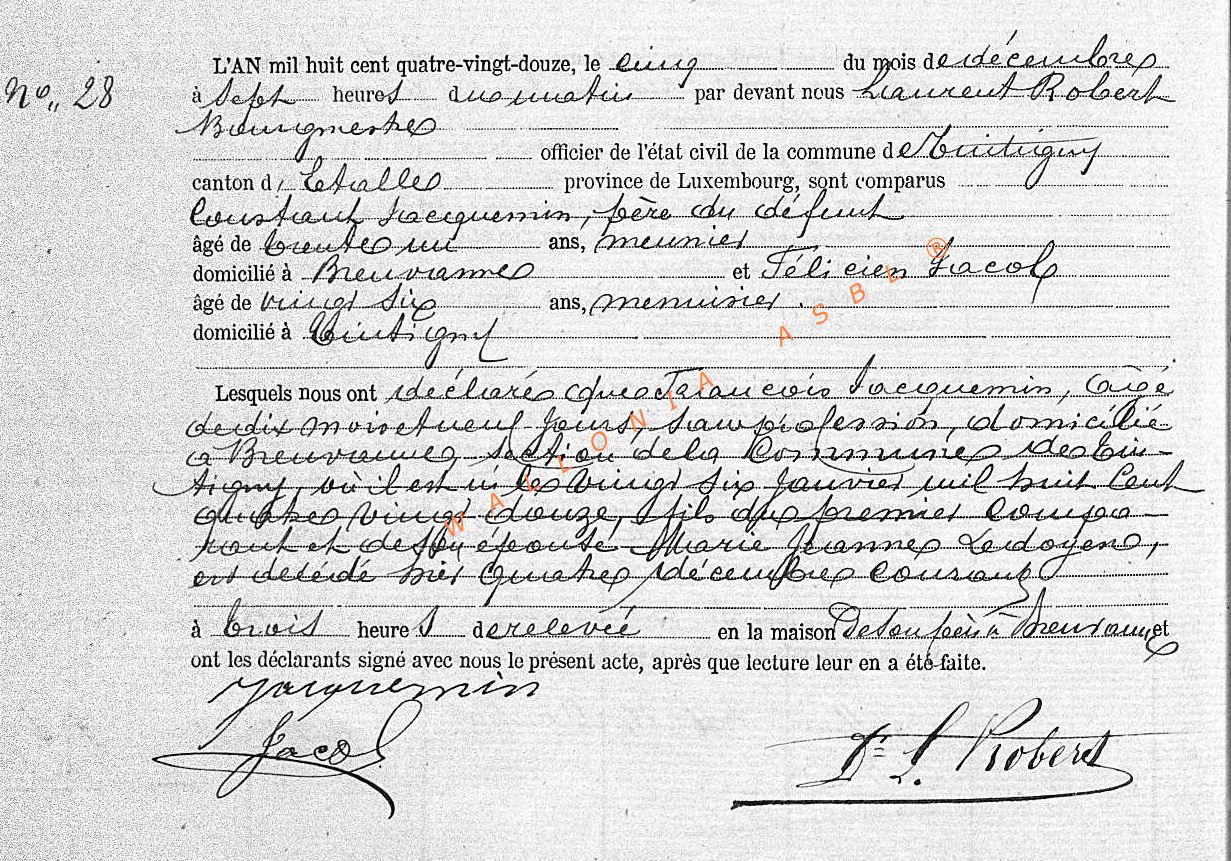 L'AN mil huit cent quatre-vingt-douze, le cinq du mois de décembre
No. 28
à sept heures du matin par devant nous Laurent Robert
Bourgmestre
officier de l'état civil de la commune de Tintigny
canton d'Etalle province de Luxembourg, sont comparus
Constant Jacquemin, père du défunt
âgé de trente un ans, meunier
domicilié à Breuvanne et Félicien Jacob
âgé de vingt six ans, menuisier.
domicilié à Tintigny
Lesquels nous ont déclaré que François Jacquemin, âgé
de dix mois et neuf jours, sans profession, domicilié
à Breuvanne, section de la Commune de Tin-
tigny, où il est né le vingt six Janvier mil huit Cent
quatre vingt douze, fils du premier Compa-
rant et de son épouse Marie Jeanne Ledoyen,
est décédé hier quatre décembre courant
à trois heures de relevée en la maison de son père à Breuvanne et
ont les déclarants signé avec nous le présent acte, après que lecture leur en a été faite.
Jacquemin
Jacob
Dr L. Robert
WALLONIA ASBL ®